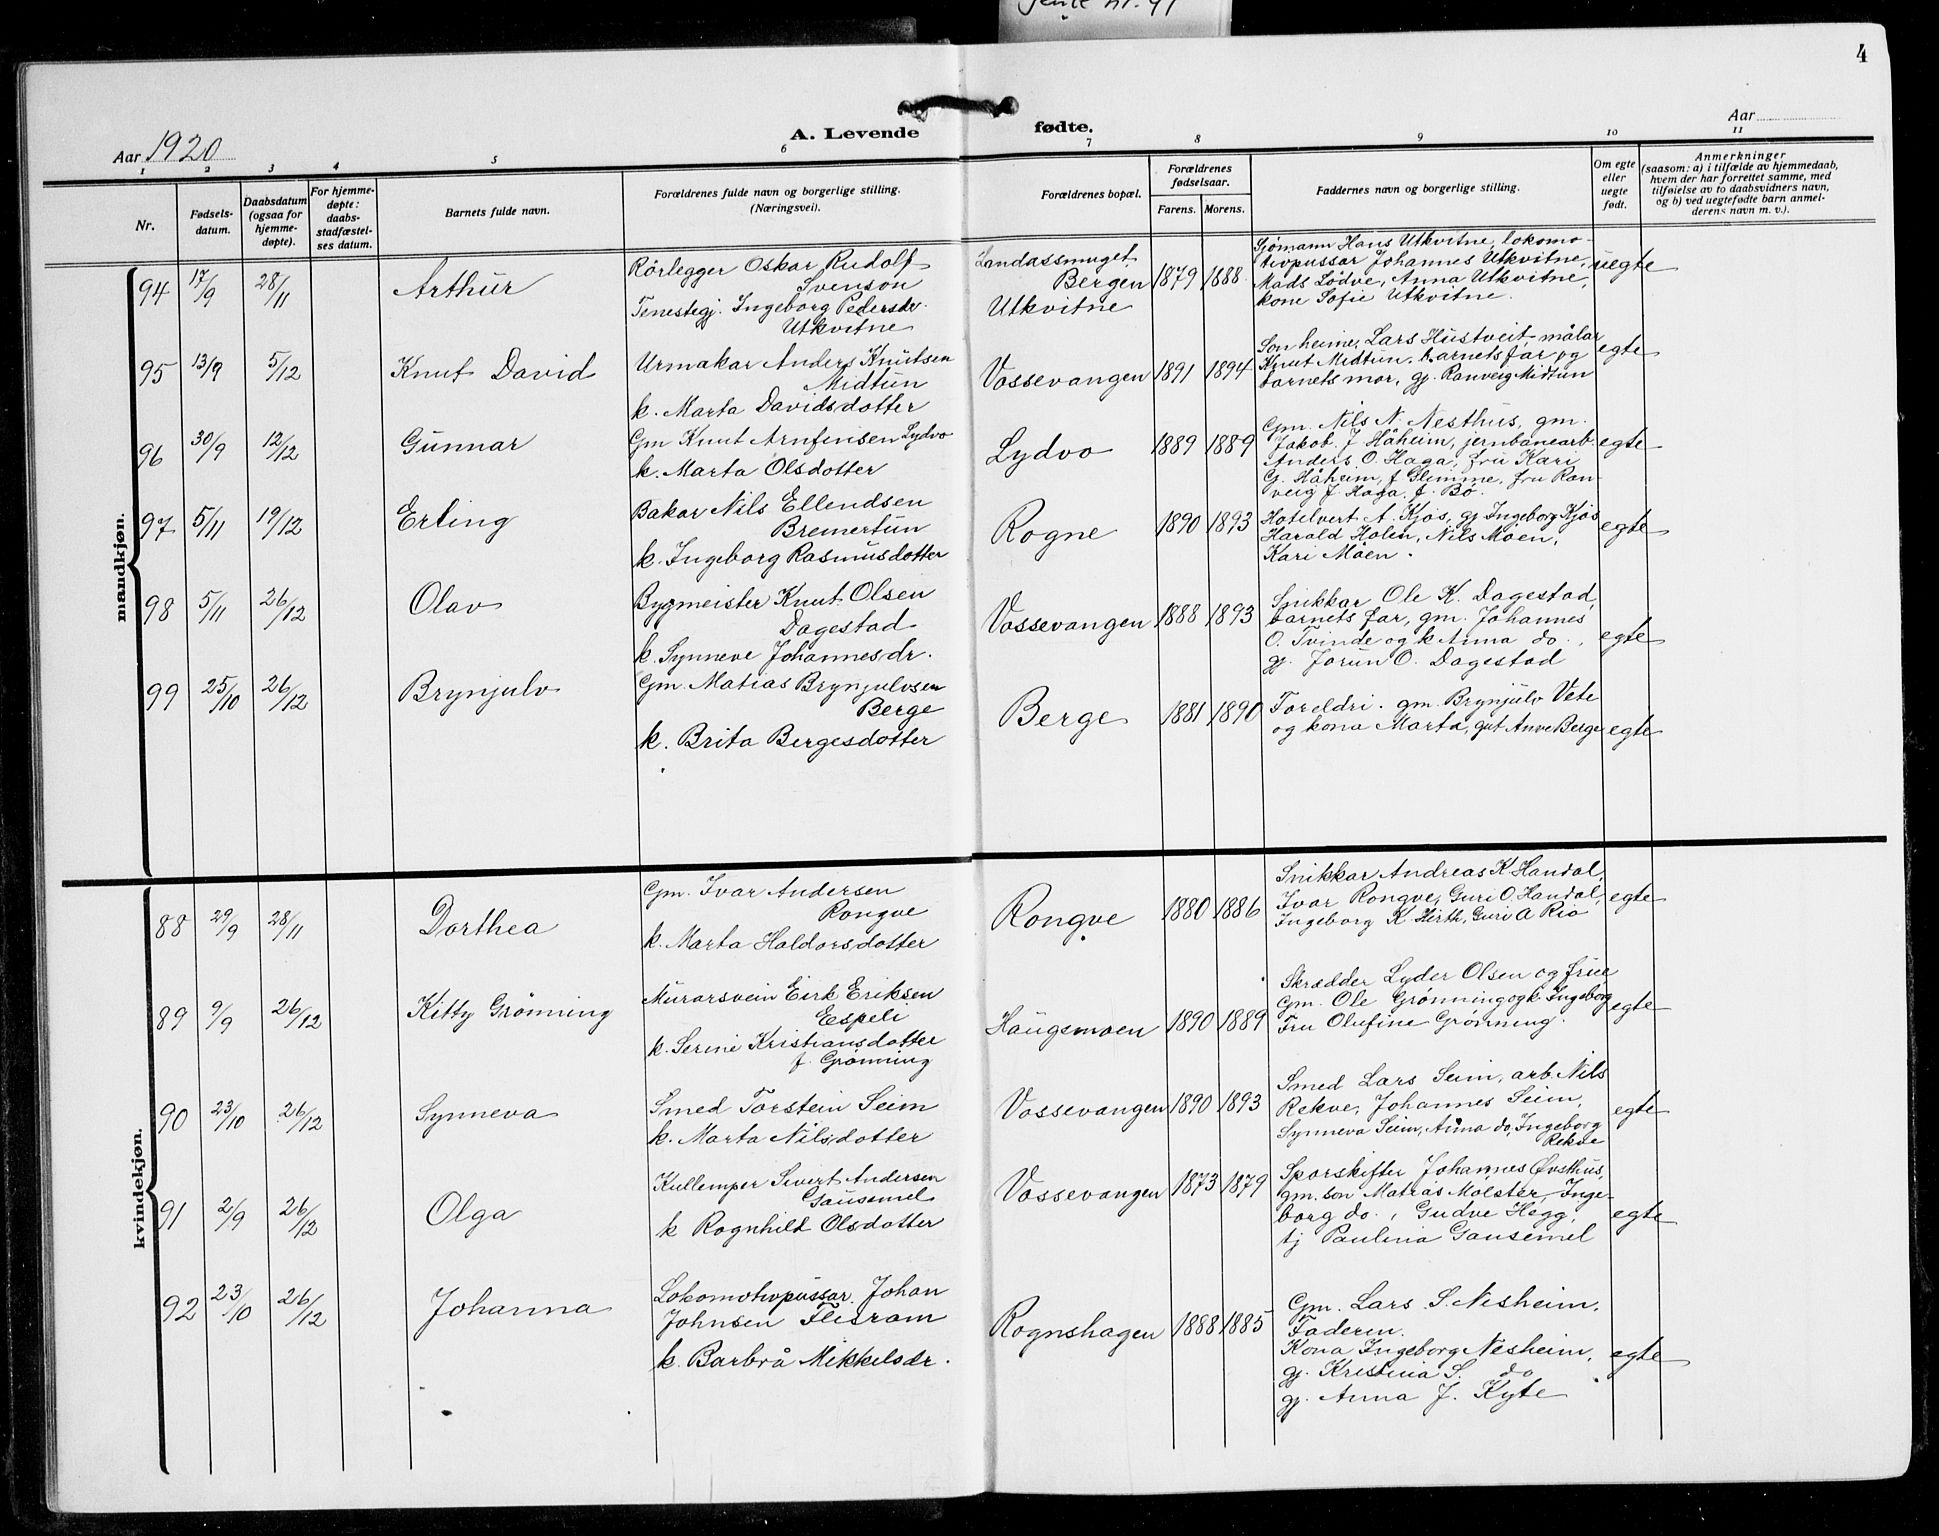 4
Aar 1920
A. Levende fødte.
Aar
1 2 3 4 5 6 7 8 9 10 11
Nr.
Fødsels-
datum.
Daabsdatum
(ogsaa for
hjemme-
døpte).
For hjemme-
døpte:
daabs-
stadfæstel-
ses datum.
Barnets fulde navn.
Forældrenes fulde navn og borgerlige stilling.
(Næringsvei).
Forældrenes bopæl.
Forældrenes
fødselsaar.
Farens. Morens.
Faddernes navn og borgerlige stilling.
Om egte
eller
uegte
født.
Anmerkninger
(saasom: a) i tilfælde av hjemmedaab,
hvem der har forrettet samme, med
tilføielse av to daabsvidners navn,
og b) ved uegtefødte barn anmel-
derens navn m. v.).
mandkjøn.
94 17/9 28/11 Arthur
Rörlegger Oskar Rudolf
Svenson
Tenestegj. Ingeborg Pedersdr.
Utkvitne
Landassmuget
Bergen
Utkvitne
1879 1888
Sjömann Hans Utkvitne, lokomo-
tivpussar Johannes Utkvitne,
Mads Lødve, Anna Utkvitne,
kone Sofie Utkvitne.
uegte
95 13/9 5/12 Knut David
Urmakar Anders Knutsen
Midtun
k. Marta Davidsdotter
Vossevangen 1891 1894
Son heime, Lars Hustveit, målar
Knut Midtun, barnets far og
barnets mor, gj. Ranveig Midtun
egte
96 30/9 12/12 Gunnar
Gm Knut Arnfinsen Lydvo
k. Marta Olsdotter
Lydvo 1889 1889
Gm. Nils N. Nesthus, gm.
Jakob J Håheim, jernbanearb.
Anders O. Haga, fru Kari
G. Håheim, f Glimme, fru Ran-
veig J Haga, f. Bø.
egte
97 5/11 19/12 Erling
Bakar Nils Ellendsen
Bremertun
k. Ingeborg Rasmusdotter
Rogne 1890 1893
Hotelvert A. Kjös, gj Ingeborg Kjös
Harald Holen, Nils Moen,
Kari Moen.
egte
98 5/11 26/12 Olav
Bygmeister Knut Olsen
Dagestad
k. Synneve Johannesdr.
Vossevangen 1888 1893
Snikkar Ole K. Dagestad,
barnets far, gm. Johannes
O. Tvinde og k Anna do.,
gj. Jorun O. Dagestad
egte
99 25/10 26/12 Brynjulv
Gm. Matias Brynjulvsen
Berge
k. Brita Bergesdotter
Berge 1881 1890
Foreldri. gm. Brynjulv Vete
og kona Marta, gut Anve Berge
egte
kvindekjøn.
88 29/9 28/11 Dorthea
Gm. Ivar Andersen
Rongve
k. Marta Haldorsdotter
Rongve 1880 1886
Snikkar Andreas K Handal,
Ivar Rongve, Guri O. Handal,
Ingeborg K. Hirth, Guri A Rio
egte
89 9/9 26/12 Kitty Grönning
Murarsvein Eirk Eriksen
Espeli
k. Serine Kristiansdotter
f. Grönning
Haugsmoen 1890 1889
Skrædder Lyder Olsen og frue
Gm. Ole Grönning og k. Ingeborg
Fru Olufine Grönning.
egte
90 23/10 26/12 Synneva
Smed Torstein Seim
k. Marta Nilsdotter
Vossevangen 1890 1893
Smed Lars Seim, arb. Nils
Rekve, Johannes Seim,
Synneva Seim, Anna do, Ingeborg
Rekve
egte
91 2/9 26/12 Olga
Kullemper Sivert Andersen
Gausemel
k Rognhild Olsdotter
Vossevangen 1873 1879
Sporskifter Johannes Øvsthus,
gm. son Matias Mølster, Inge-
borg do., Gudve Hegg,
tj Paulina Gausemel
egte
92 23/10 26/12 Johanna
Lokomotivpussar Johan
Johnsen Flisram
k. Barbrå Mikkelsdr.
Rognshagen 1888 1885
Gm. Lars S. Nesheim,
Faderen.
Kona Ingeborg Nesheim,
gj. Kristina S. do
gj. Anna J. Kyte
egte